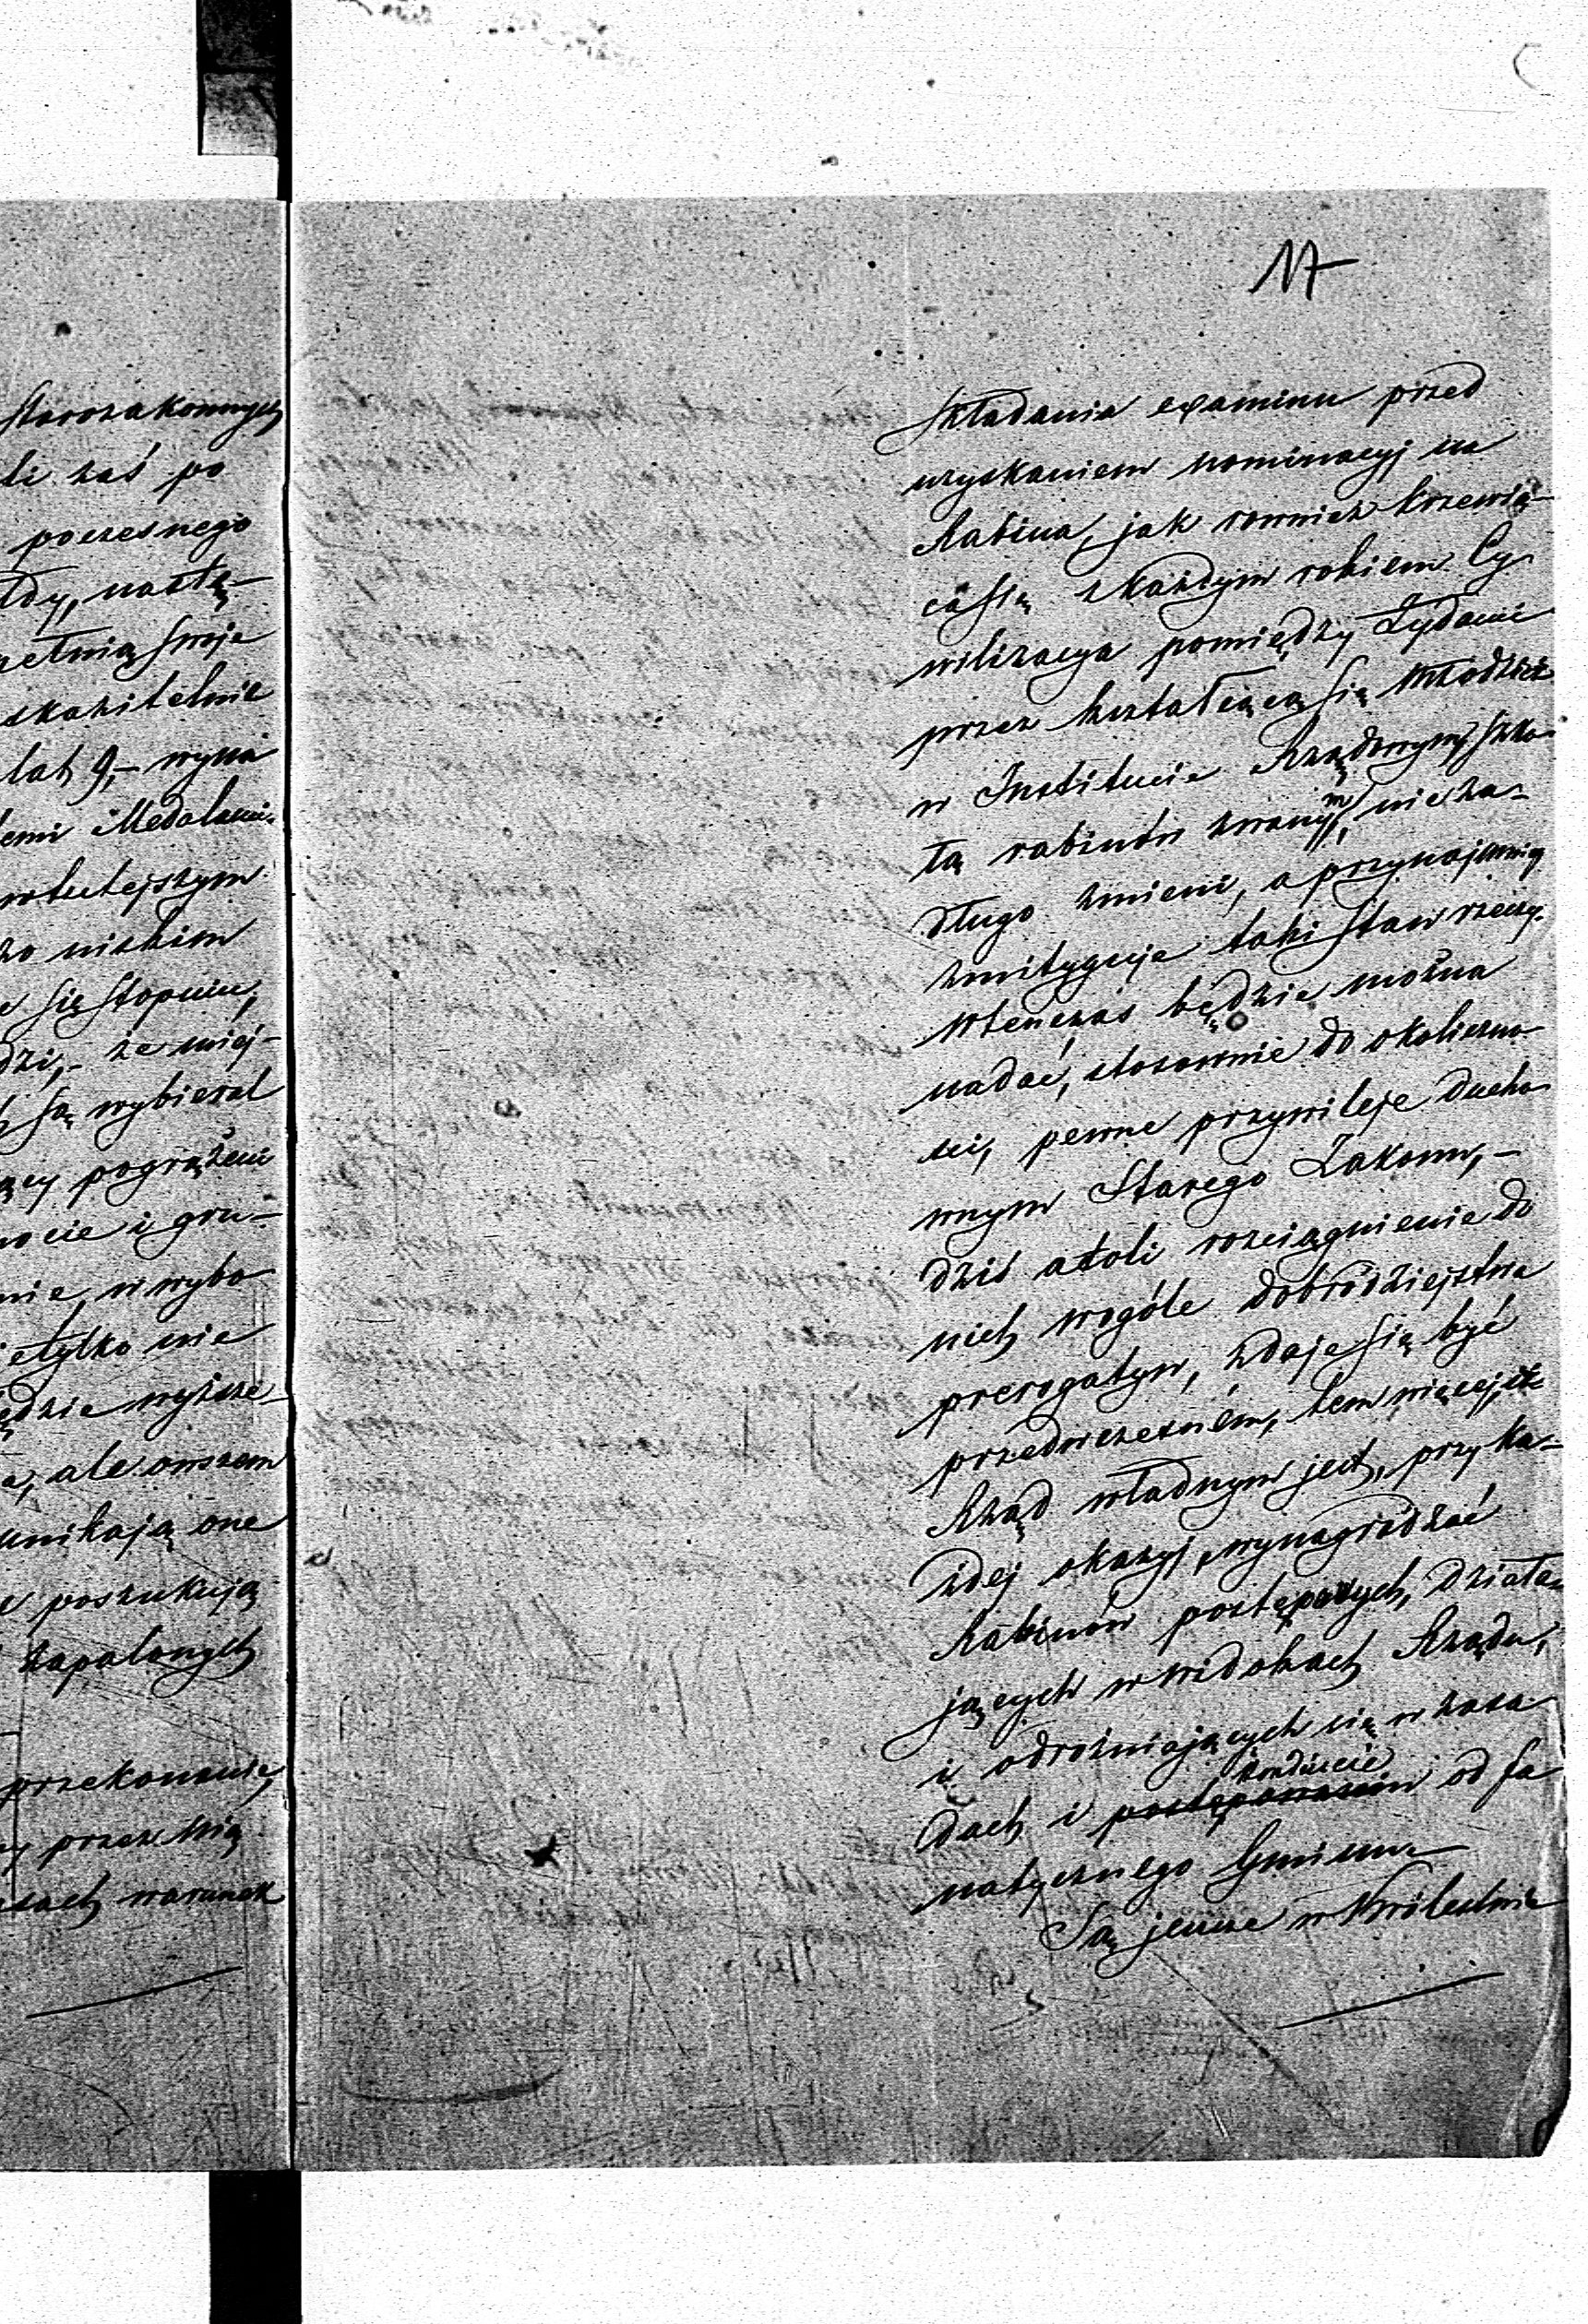 Starozakonnych
li zaś po
poczesnego
nastę-
pełnią swoje
skazitelnie
lat 9,- wyna
Medalami.
wtutejszym
nizkim
się stopniu,
że miej-
są wybierał
pogrążeni
cie i gru-
nie, w wybo-
tylko nie
ędzie wyższe-
a, ale owszem
unikają one
poszukują
zapalonych
przekonanie,
przez nią
sach warunek
17
Składania examinu przed
uzyskaniem nominacyj na
Rabina, jak rownież krzewią-
casię zkażdym rokiem Cy-
wilizacya pomiędzy Żydami
przez kształcącą się młodzież
w Institucie Rządowym, szko-
łą rabinów zwanym, nieza-
długo zmieni, a przynajmniej
zmityguje taki stan rzeczy.
Wtenczas będzie można
nadać, stosownie do okoliczno-
ści, pewne przywileje ducho-
wnym Starego Zakonu,-
dziś atoli rozciągnienie do
nich wogóle dobrodziejstwa
prerogatyw, zdaje się być
przedwczesném, tem więcej, że
Rząd władnym jest, przy ka-
żdej okazyj, wynagradzać
Rabinów postępowych, działa-
jących w widokach Rządu,
i odrożniających się w zasa-
konduicie
dach i postępowaniu od fa-
natycznego Gminu.-
Są jeszcze w Królestwie